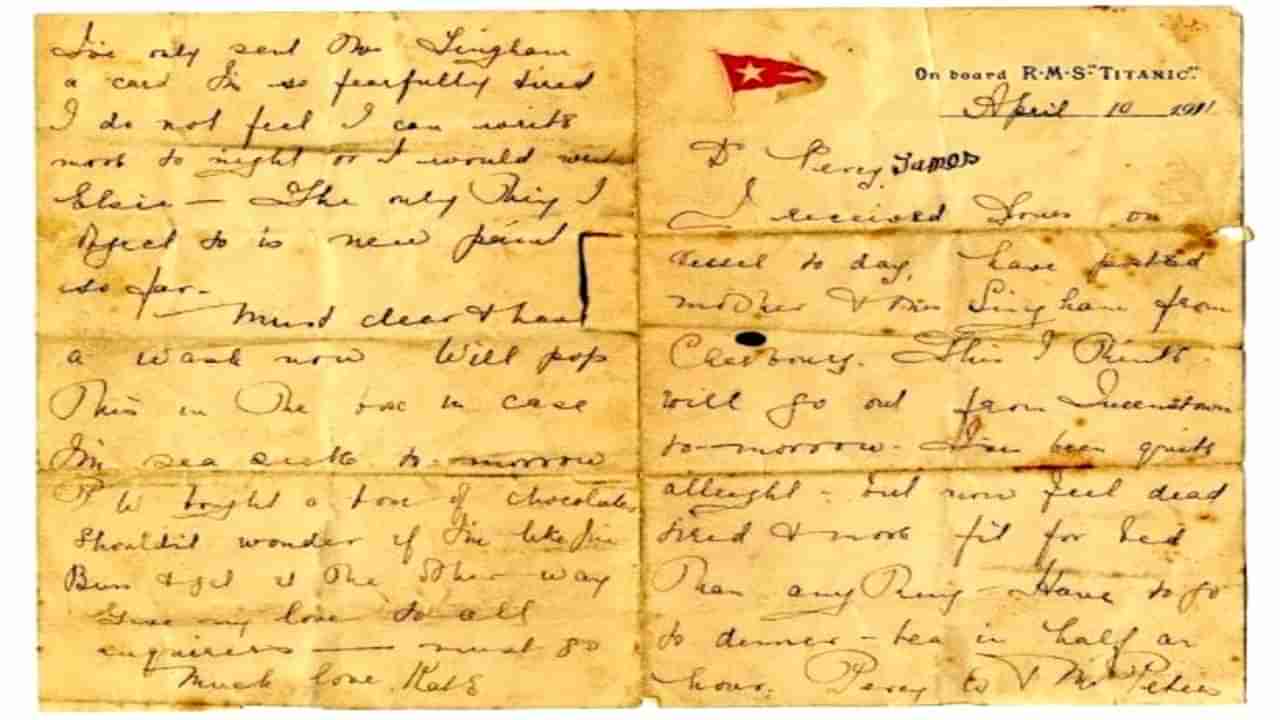 On board R·M·S "TITANIC".
April 10
D Percy James
I received Yours on
Vessel to day, have parted
mother & Lingham from
This I Think
will go out from Queenstown
to-morrow - I've been quite
allright - but now feel dead
tired & more fit for bed
Than any Thing - Have to go
to dinner - tea in half an
hour. Percy
I've only sent Mr Lingham
a card I'm so fearfully tired
I do not feel I can write
more to night or I would write
Elsie — The only Thing I
object to is new paint
so far -
Must clear & have
a wash now Will pop
This in The box in case
I'm sea sick to-morrow
P W bought a box of chocolate
Shouldn't wonder if I'm like Jim
& get it The other way
Give my love to all
enquirers — must go
Much love Kate